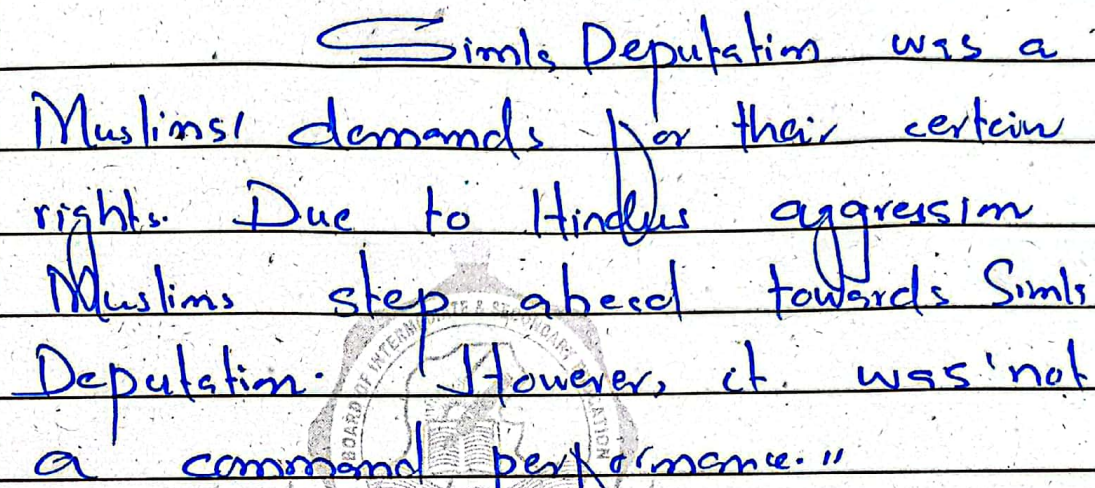 Simla Deputation was a
Muslims' demands for their certain
rights. Due to Hindus aggression
Muslims step ahead towards Simla
Deputation. However, it was 'not
a command performance."
BOARD OF INTERMEDIATE & SECONDARY EDUCATION